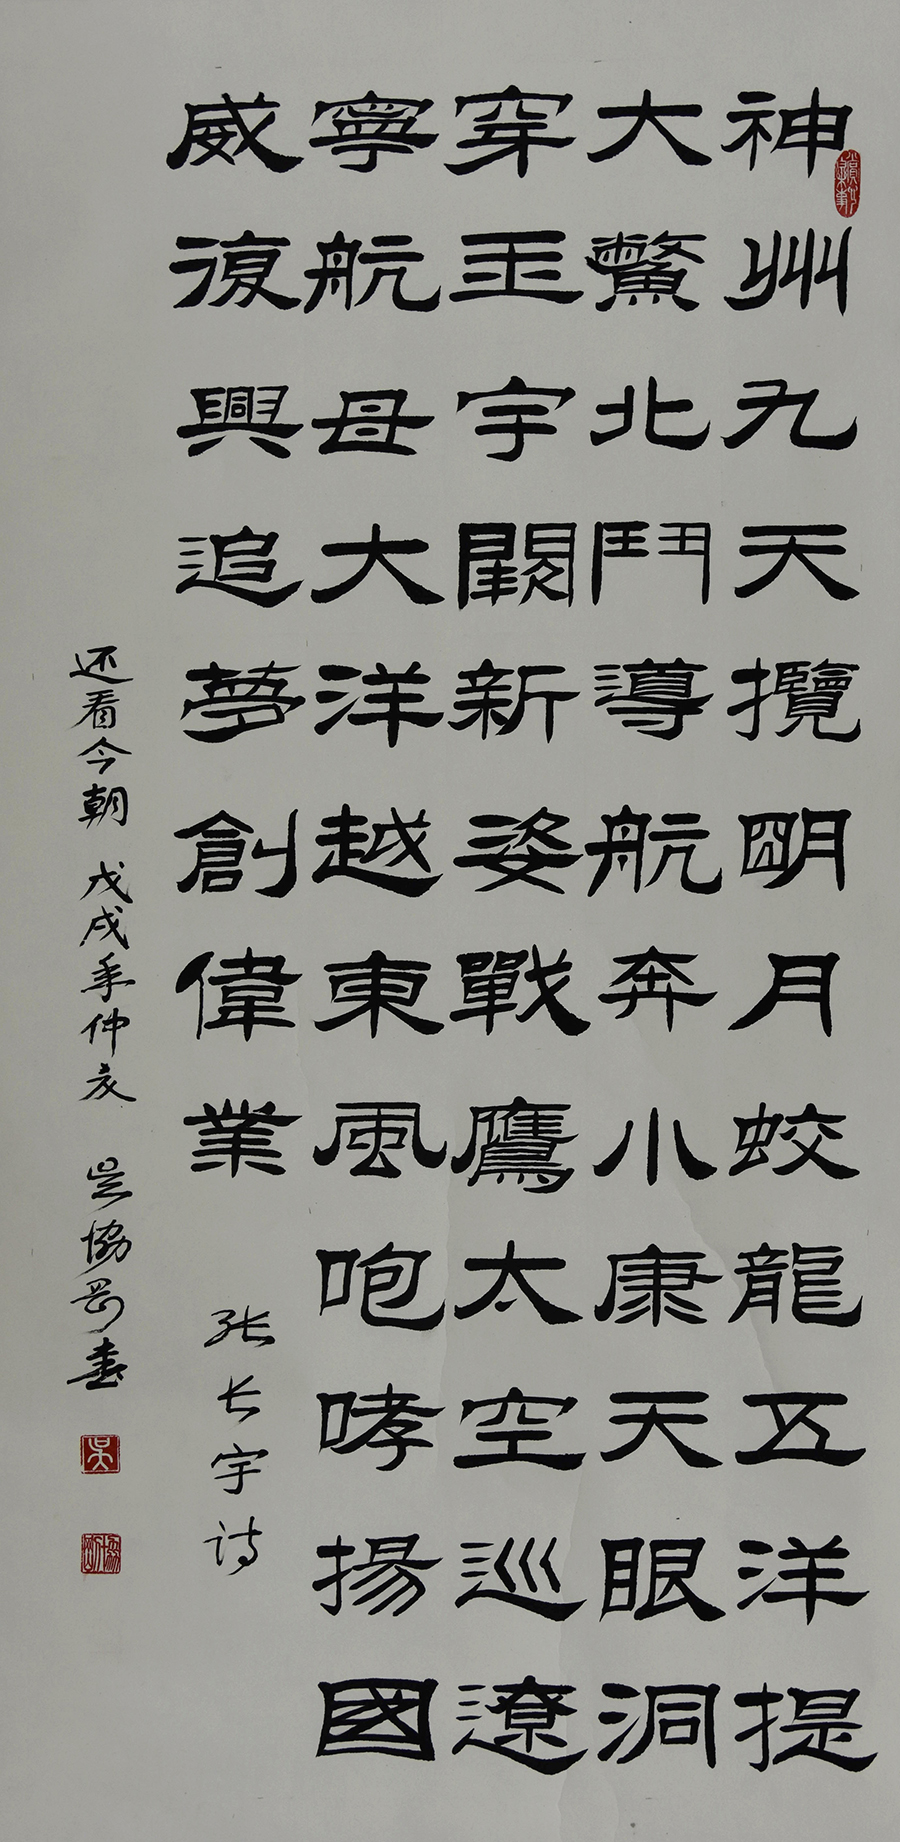 神州九天攬明月蛟龍五洋提
大鱉北鬥導航奔小康天眼洞
穿玉宇闕新姿戰鷹太空巡遼
寧航母大洋越東風咆哮揚國
威復興追夢創偉業
张长宇诗
还看今朝 戊戌年仲夏 吴協昌書
吴